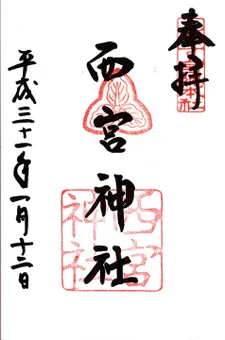 奉拝
西宮神社
西宮神社
平成三十一年一月十二日